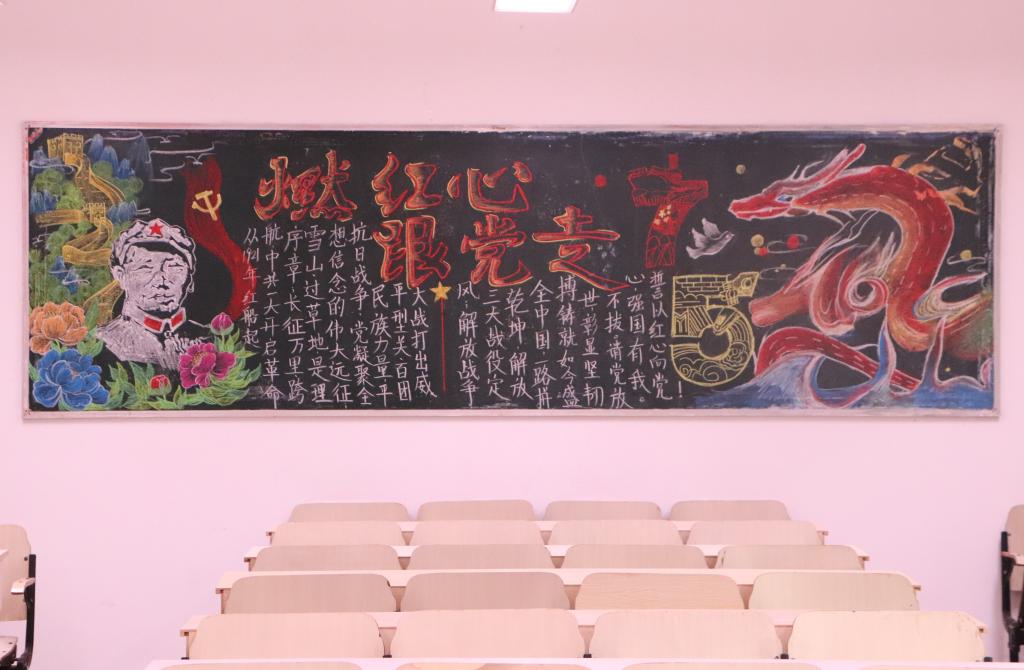 燃红心
跟党走
75
从1921年红船起
航中共一大开启革命
序章,长征万里,跨
雪山,过草地,是理
想信念的伟大远征.
抗日战争,党凝聚全
民族力量.平
平型关百团
大战打出威
风,解放战争
三大战役定
乾坤,解放
全中国一路拼
搏铸就如今盛
世,彰显坚韧
不拔,请党放
心,强国有我。
誓以红心向党!